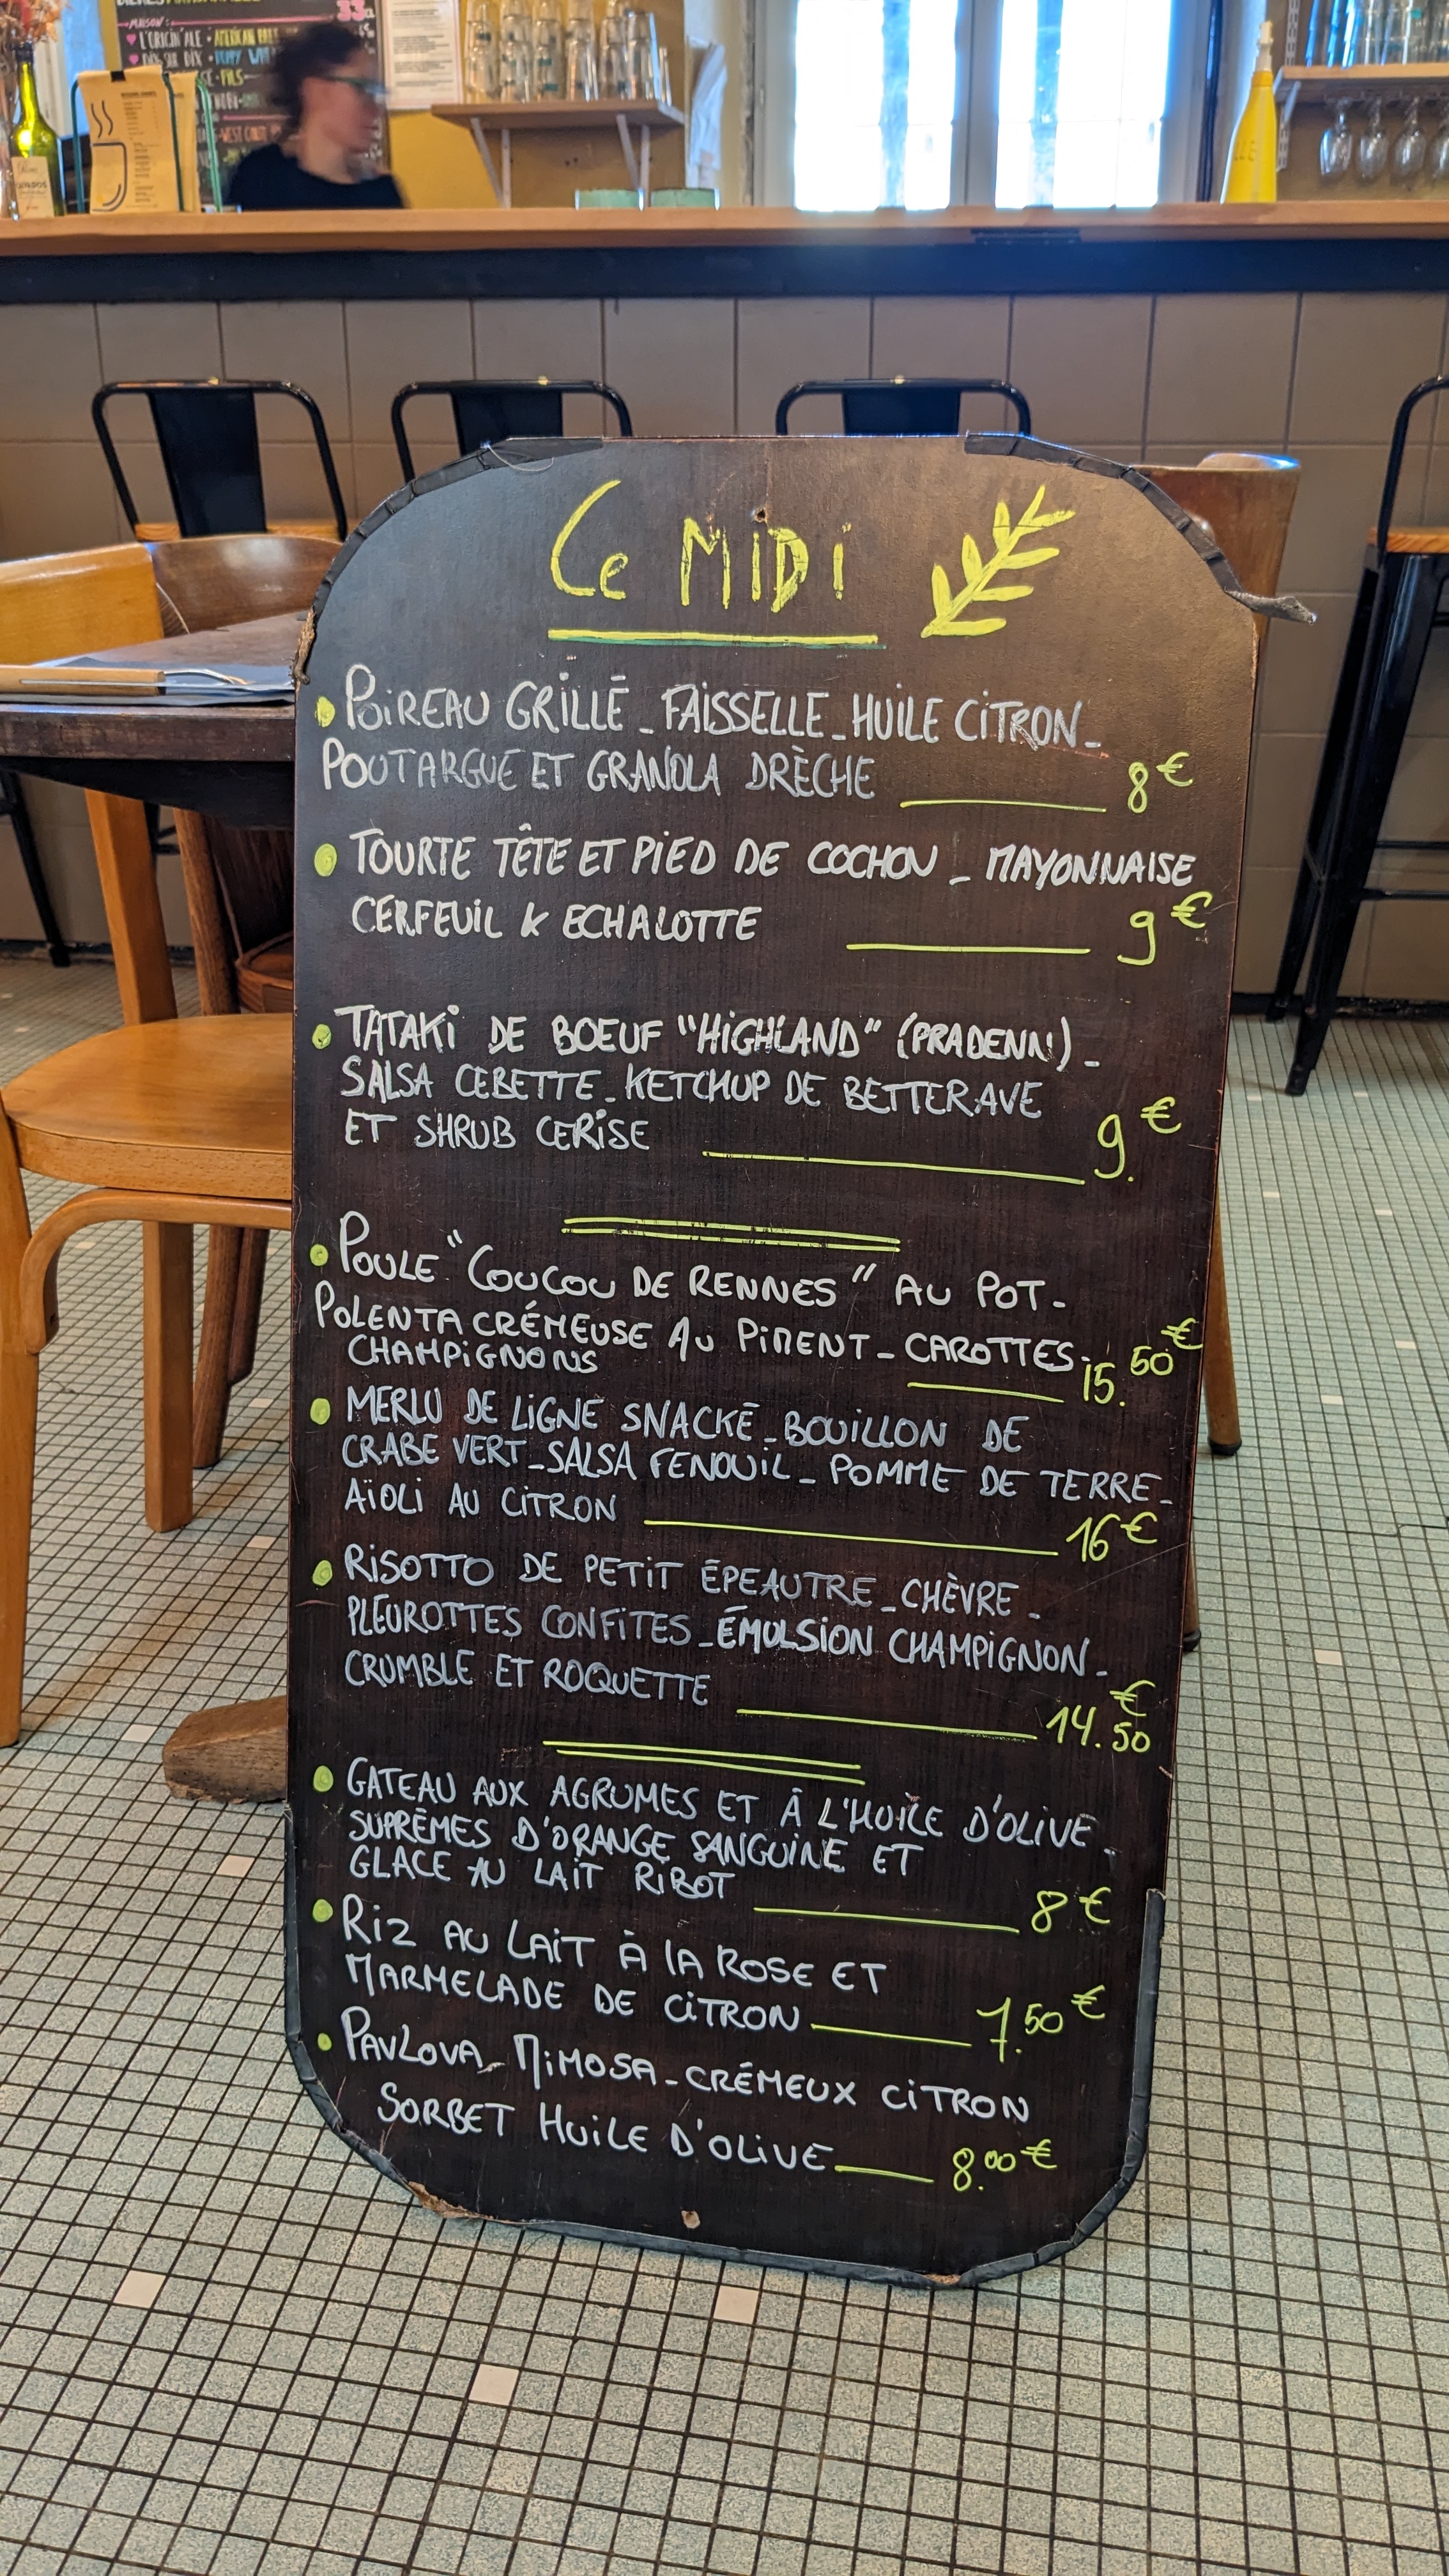 33
MAISON:
L'ORIGIN'ALE • AMERICAN
FILS
CE MIDI
POIREAU GRILLÉ _ FAISSELLE _ HUILE CITRON _
POUTARGUE ET GRANOLA DRÈCHE 8€
TOURTE TÊTE ET PIED DE COCHON _ MAYONNAISE
CERFEUIL & ECHALOTTE 9€
TATAKI DE BOEUF "HIGHLAND" (PRADENN) _
SALSA CEBETTE _ KETCHUP DE BETTERAVE
ET SHRUB CERISE 9€
POULE "COUCOU DE RENNES" AU POT -
POLENTA CRÉMEUSE AU PIMENT - CAROTTES -
CHAMPIGNONS 15.50€
MERLU DE LIGNE SNACKÉ _ BOUILLON DE
CRABE VERT _ SALSA FENOUIL _ POMME DE TERRE _
AÏOLI AU CITRON 16€
RISOTTO DE PETIT ÉPEAUTRE _ CHÈVRE _
PLEUROTTES CONFITES _ ÉMULSION CHAMPIGNON _
CRUMBLE ET ROQUETTE 14.50€
GATEAU AUX AGRUMES ET À L'HUILE D'OLIVE _
SUPRÊMES D'ORANGE SANGUINE ET
GLACE AU LAIT RIBOT 8€
RIZ AU LAIT À LA ROSE ET
MARMELADE DE CITRON 7.50€
PAVLOVA _ MIMOSA _ CRÉMEUX CITRON
SORBET HUILE D'OLIVE 8.00€